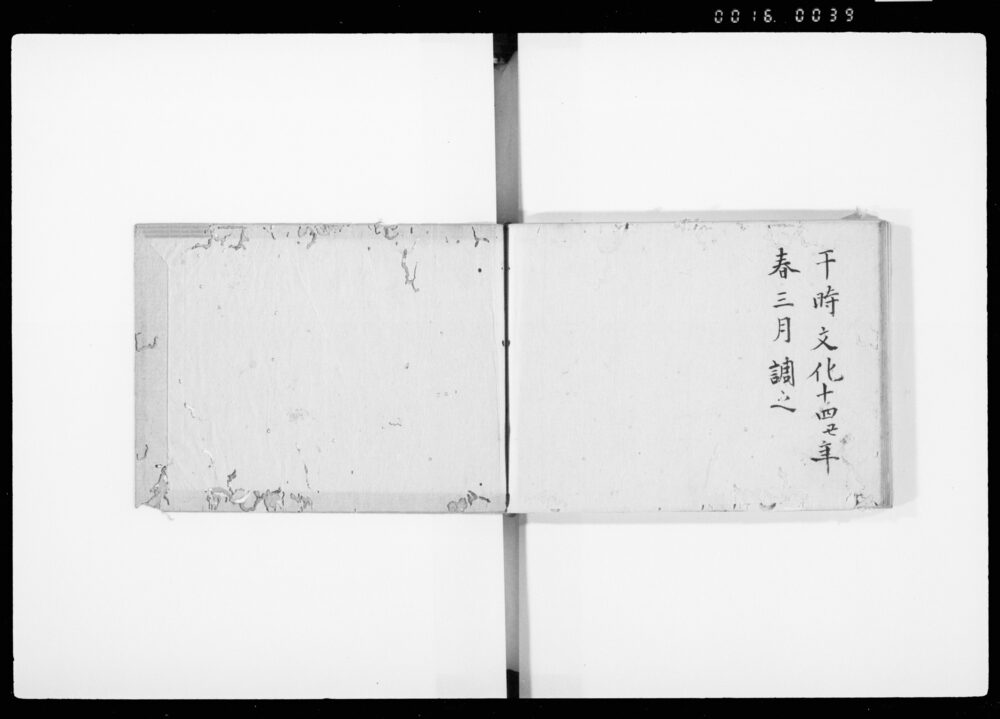 0016. 0039
于時文化十四丑年
春三月調之